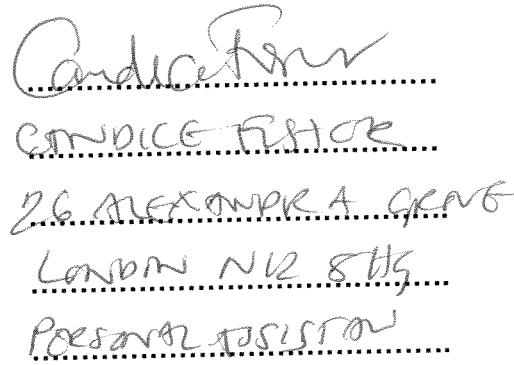 Candice Fisher
CANDICE FISHER
26 ALEXANDRA GROVE
LONDON N12 8HG
PERSONAL ASSISTAN